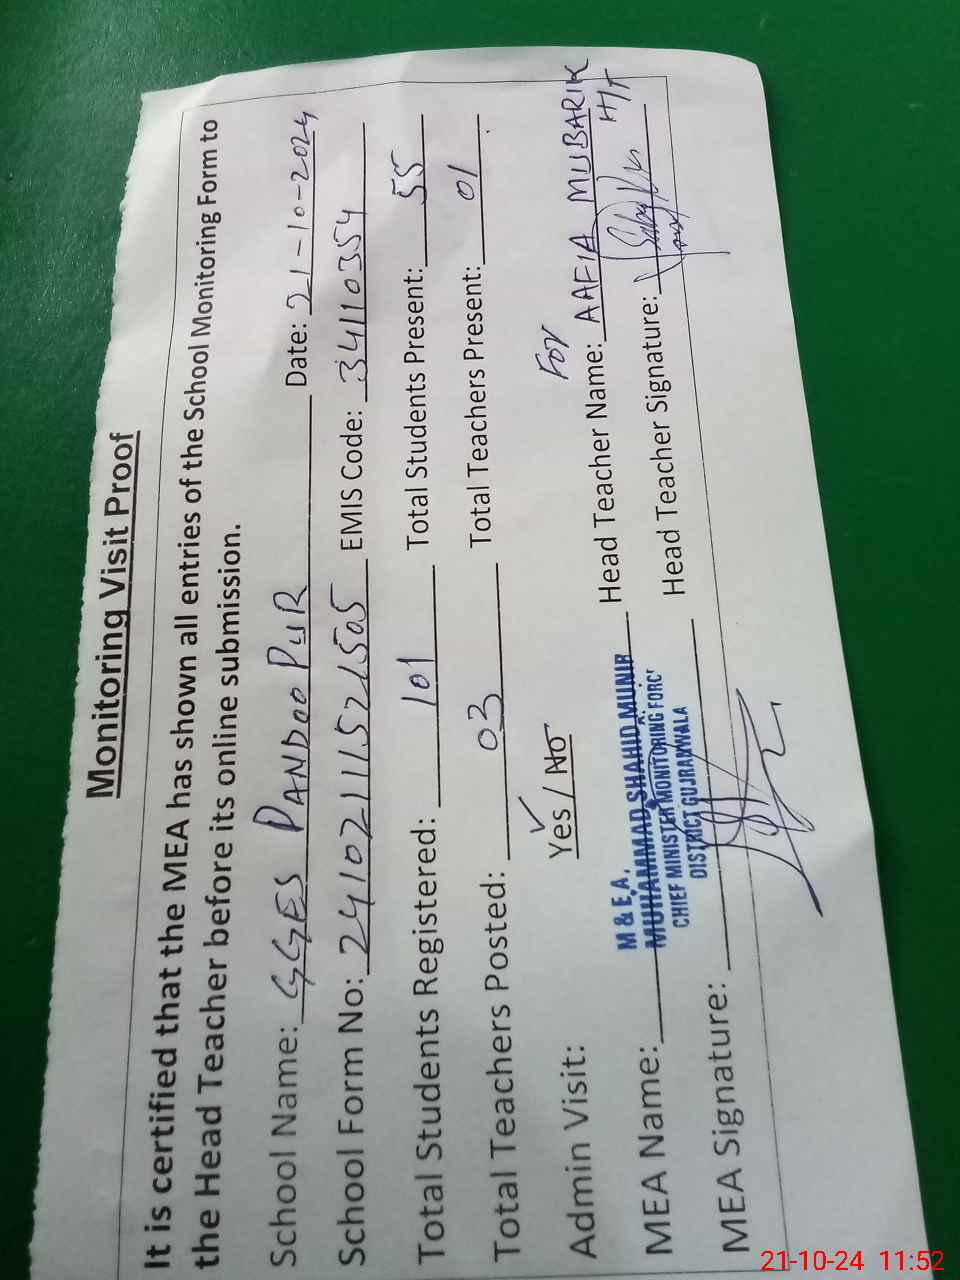 Monitoring Visit Proof
It is certified that the MEA has shown all entries of the School Monitoring Form to
the Head Teacher before its online submission.
School Name: GGES PANDOO PUR Date: 21-10-2024
School Form No: 24102111521505 EMIS Code: 34110354
Total Students Registered: 101 Total Students Present: 55
Total Teachers Posted: 03 Total Teachers Present: 01
Admin Visit: Yes / No For
M & E.A,
MEA Name: MUHAMMAD SHAHID MUNIR Head Teacher Name: AAFIA MUBARIK
CHIEF MINISTER MONITORING FORC
DISTRICT GUJRANWALA
MEA Signature: Head Teacher Signature: H/T
21-10-24 11:52